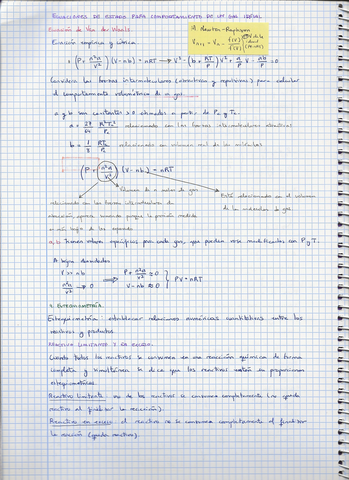 ECUACIONES DE ESTADO PARA COMPORTAMIENTO DE UN GAS IDEAL
Ecuación de Van der Waals
Ecuación empírica y cúbica
Newton-Raphson
(P + n²a/V²) (V - nb) = nRT → V³ - (b + RT/P) V² + a/P V - ab/P = 0
Considera las fuerzas intermoleculares (atractivas y repulsivas) para calcular
el comportamiento volumétrico de un gas
a y b son constantes > 0 obtenidas a partir de Pc y Tc
a = 27/64 R²Tc²/Pc relacionada con las fuerzas intermoleculares atractivas
b = 1/8 RTc/Pc relacionada con volumen real de las moléculas
(P + n²a/V²) (V - nb) = nRT
Número de moles de gas
relacionado con las fuerzas intermoleculares de
Está relacionado con el volumen
de las moléculas de gas
atracción, aparece sumando porque la presión medida
es más baja de lo esperado
a, b tienen valores específicos para cada gas, que pueden verse modificados con P y T.
A bajas densidades
V >> nb
n²a/V² → 0
P + n²a/V² ≈ 0
V - nb ≈ 0
PV = nRT
ESTEQUIOMETRÍA
Estequiometría: establecer relaciones numéricas cuantitativas entre los
reactivos y productos
REACTIVO LIMITANTE Y EN EXCESO
Cuando todos los reactivos se consumen en una reacción química de forma
completa y simultánea se dice que los reactivos están en proporciones
estequiométricas.
Reactivo limitante: uno de los reactivos se consume completamente (no queda
reactivo al finalizar la reacción).
Reactivo en exceso: el reactivo no se consume completamente al finalizar
la reacción (queda reactivo).